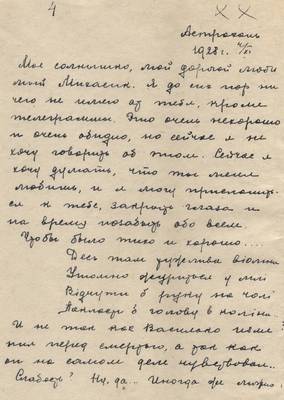 4
XX
Астрахань
1928 г. 4/XI
Мое солнышко, мой дорогой люби
мый Михасик. Я до сих пор ни
чего не имею от тебя, кроме
телеграммы. Это очень нехорошо
и очень обидно, но сейчас я не
хочу говорить об этом. Сейчас я
хочу думать, что ты меня
любишь, и я могу прислонить
ся к тебе, закрыть глаза и
на время позабыть обо всем
Чтобы было тихо и хорошо....
Десь там
Утомно журиться у млі
Відчути б руку на чолі
б голову в коліна.
И не так как Василько
перед смертью, а так как
он на самом деле чувствовал..
Слабость? Ну, да... Иногда же можно!